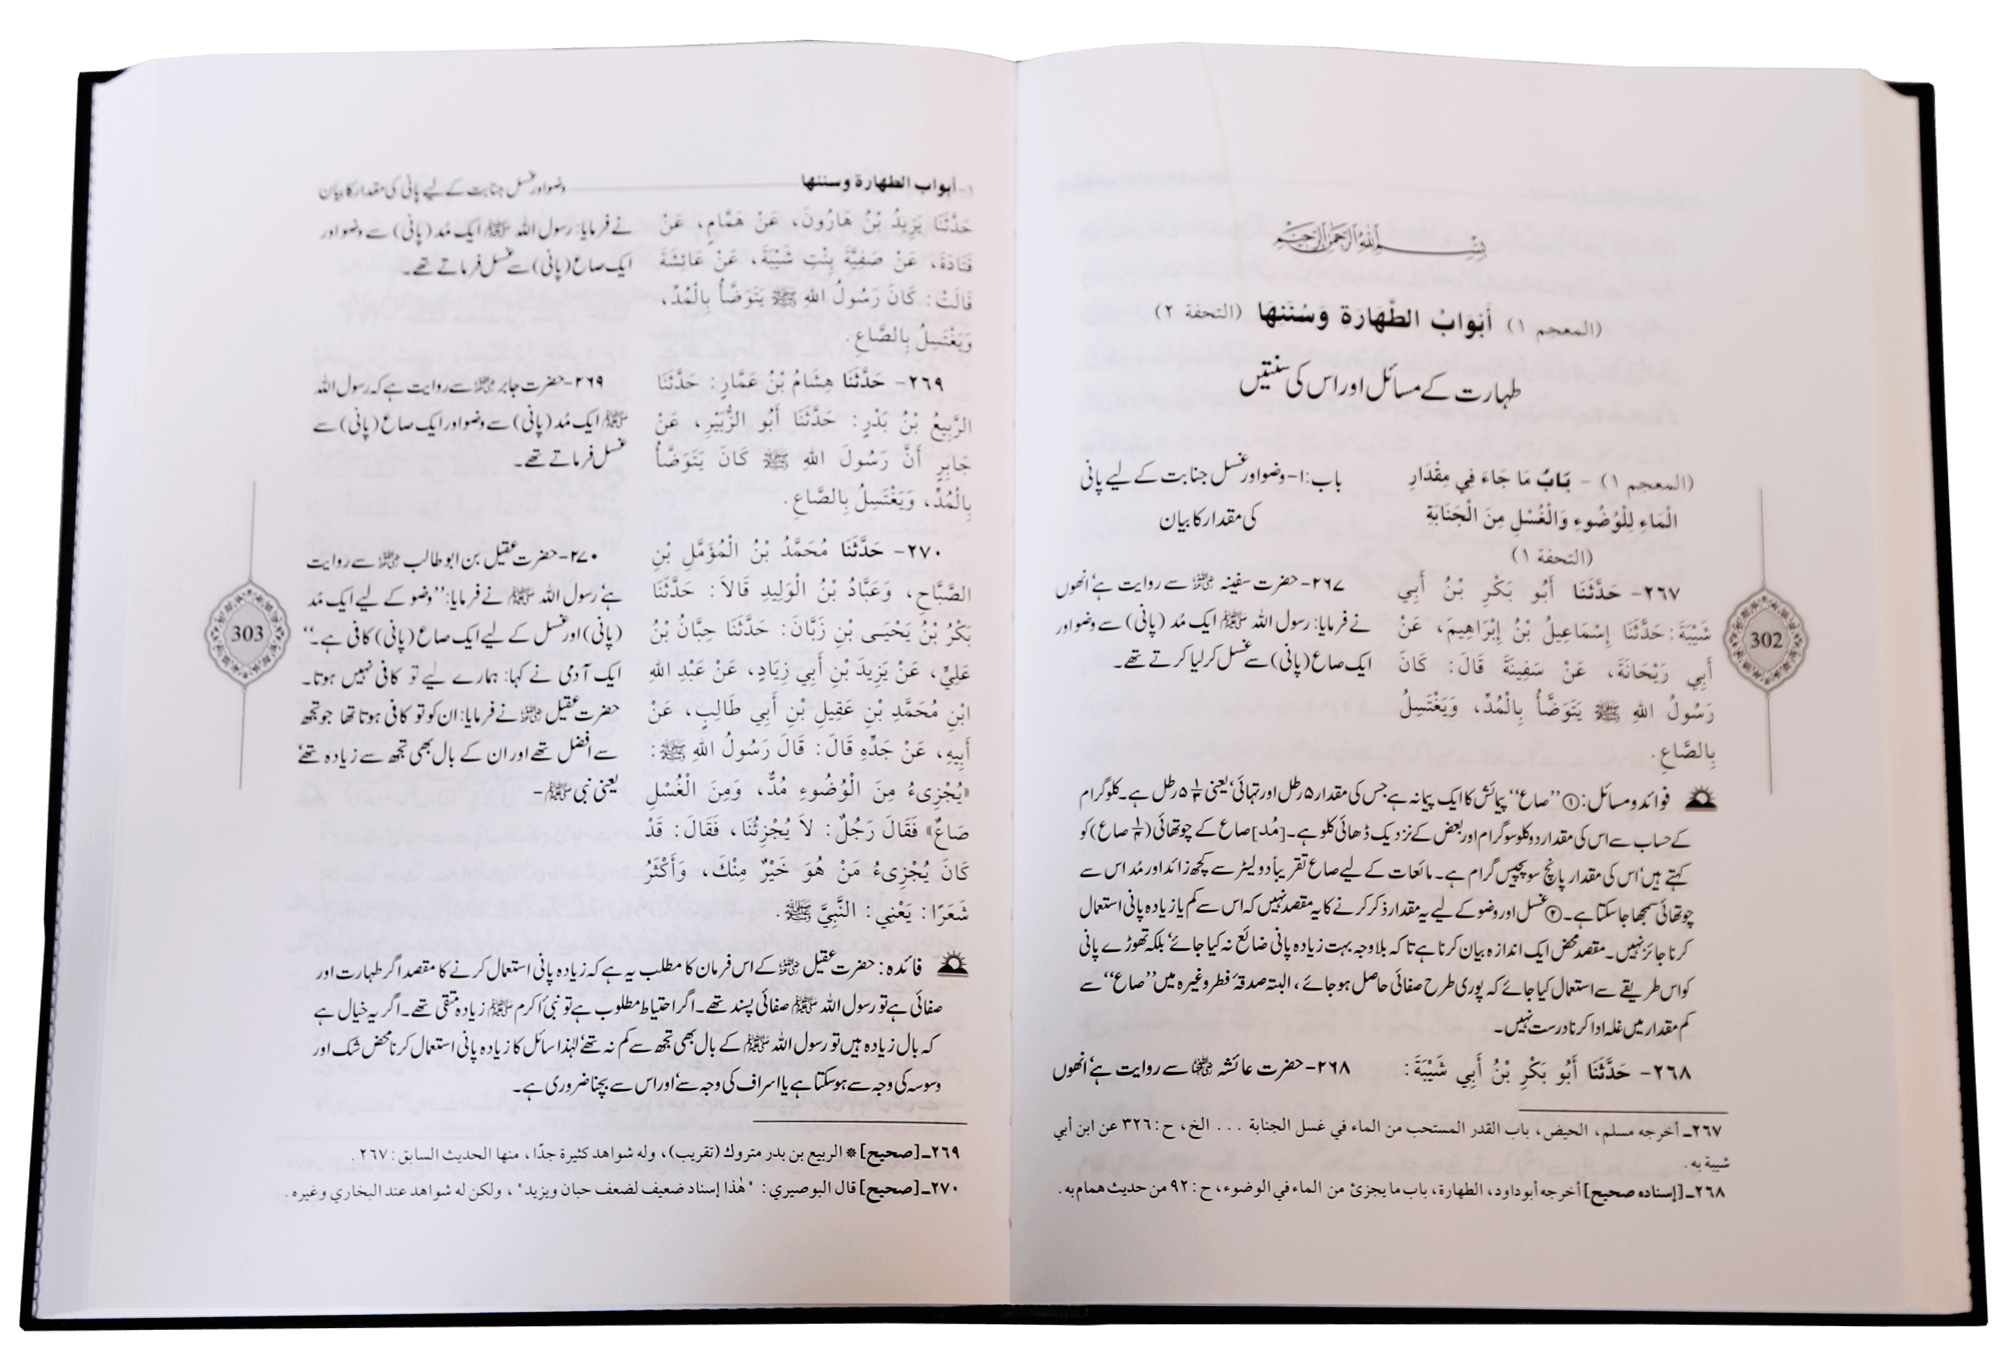 بِسْمِ اللهِ الرَّحْمٰنِ الرَّحِيْمِ
(المعجم ١) أَبْوَابُ الطَّهَارَةِ وَسُنَنِهَا (التحفة ٢)
طہارت کے مسائل اور اس کی سنتیں
(المعجم ١) - بَابُ مَا جَاءَ فِي مِقْدَارِ
الْمَاءِ لِلْوُضُوءِ وَالْغُسْلِ مِنَ الْجَنَابَةِ
(التحفة ١)
باب:۱- وضو اور غسل جنابت کے لیے پانی
کی مقدار کا بیان
٢٦٧- حَدَّثَنَا أَبُو بَكْرِ بْنُ أَبِي
شَيْبَةَ: حَدَّثَنَا إِسْمَاعِيلُ بْنُ إِبْرَاهِيمَ، عَنْ
أَبِي رَيْحَانَةَ، عَنْ سَفِينَةَ قَالَ: كَانَ
رَسُولُ اللهِ ﷺ يَتَوَضَّأُ بِالْمُدِّ، وَيَغْتَسِلُ
بِالصَّاعِ.
۲۶۷- حضرت سفینہ ؓ سے روایت ہے، انھوں
نے فرمایا: رسول اللہ ﷺ ایک مُد (پانی) سے وضو اور
ایک صاع (پانی) سے غسل کر لیا کرتے تھے۔
فوائد و مسائل: ① ”صاع“ پیمائش کا ایک پیمانہ ہے جس کی مقدار ۵ رطل اور تہائی، یعنی ۵ ۱/۳ رطل ہے۔ کلو گرام
کے حساب سے اس کی مقدار دو کلو سو گرام اور بعض کے نزدیک ڈھائی کلو ہے۔ [مُد] صاع کے چوتھائی (۱/۴ صاع) کو
کہتے ہیں، اس کی مقدار پانچ سو پچیس گرام ہے۔ مائعات کے لیے صاع تقریباً دو لیٹر سے کچھ زائد اور مُد اس سے
چوتھائی سمجھا جا سکتا ہے۔ ② غسل اور وضو کے لیے یہ مقدار ذکر کرنے کا یہ مقصد نہیں کہ اس سے کم یا زیادہ پانی استعمال
کرنا جائز نہیں۔ مقصد محض ایک اندازہ بیان کرنا ہے تاکہ بلاوجہ بہت زیادہ پانی ضائع نہ کیا جائے، بلکہ تھوڑے پانی
کو اس طریقے سے استعمال کیا جائے کہ پوری طرح صفائی حاصل ہو جائے، البتہ صدقۂ فطر وغیرہ میں ”صاع“ سے
کم مقدار میں غلہ ادا کرنا درست نہیں۔
٢٦٨- حَدَّثَنَا أَبُو بَكْرِ بْنُ أَبِي شَيْبَةَ:
۲۶۸- حضرت عائشہ ؓ سے روایت ہے، انھوں
٢٦٧ـ أخرجه مسلم، الحيض، باب القدر المستحب من الماء في غسل الجنابة ... الخ، ح: ٣٢٦ عن ابن أبي
شيبة به.
٢٦٨ـ [إسناده صحيح] أخرجه أبوداود، الطهارة، باب ما يجزئ من الماء في الوضوء، ح: ٩٢ من حديث همام به.
302
١- أبواب الطهارة وسننها
وضو اور غسل جنابت کے لیے پانی کی مقدار کا بیان
حَدَّثَنَا يَزِيدُ بْنُ هَارُونَ، عَنْ هَمَّامٍ، عَنْ
قَتَادَةَ، عَنْ صَفِيَّةَ بِنْتِ شَيْبَةَ، عَنْ عَائِشَةَ
قَالَتْ: كَانَ رَسُولُ اللهِ ﷺ يَتَوَضَّأُ بِالْمُدِّ،
وَيَغْتَسِلُ بِالصَّاعِ.
نے فرمایا: رسول اللہ ﷺ ایک مُد (پانی) سے وضو اور
ایک صاع (پانی) سے غسل فرماتے تھے۔
٢٦٩- حَدَّثَنَا هِشَامُ بْنُ عَمَّارٍ: حَدَّثَنَا
الرَّبِيعُ بْنُ بَدْرٍ: حَدَّثَنَا أَبُو الزُّبَيْرِ، عَنْ
جَابِرٍ أَنَّ رَسُولَ اللهِ ﷺ كَانَ يَتَوَضَّأُ
بِالْمُدِّ، وَيَغْتَسِلُ بِالصَّاعِ.
۲۶۹- حضرت جابر ؓ سے روایت ہے کہ رسول اللہ
ﷺ ایک مُد (پانی) سے وضو اور ایک صاع (پانی) سے
غسل فرماتے تھے۔
٢٧٠- حَدَّثَنَا مُحَمَّدُ بْنُ الْمُؤَمَّلِ بْنِ
الصَّبَّاحِ، وَعَبَّادُ بْنُ الْوَلِيدِ قَالاَ: حَدَّثَنَا
بَكْرُ بْنُ يَحْيَى بْنِ زَبَّانَ: حَدَّثَنَا حِبَّانُ بْنُ
عَلِيٍّ، عَنْ يَزِيدَ بْنِ أَبِي زِيَادٍ، عَنْ عَبْدِ اللهِ
ابْنِ مُحَمَّدِ بْنِ عَقِيلِ بْنِ أَبِي طَالِبٍ، عَنْ
أَبِيهِ، عَنْ جَدِّهِ قَالَ: قَالَ رَسُولُ اللهِ ﷺ:
«يُجْزِىءُ مِنَ الْوُضُوءِ مُدٌّ، وَمِنَ الْغُسْلِ
صَاعٌ» فَقَالَ رَجُلٌ: لاَ يُجْزِئُنَا، فَقَالَ: قَدْ
كَانَ يُجْزِىءُ مَنْ هُوَ خَيْرٌ مِنْكَ، وَأَكْثَرُ
شَعَرًا: يَعْنِي: النَّبِيَّ ﷺ.
۲۷۰- حضرت عقیل بن ابو طالب ؓ سے روایت
ہے، رسول اللہ ﷺ نے فرمایا: ”وضو کے لیے ایک مُد
(پانی) اور غسل کے لیے ایک صاع (پانی) کافی ہے۔“
ایک آدمی نے کہا: ہمارے لیے تو کافی نہیں ہوتا۔
حضرت عقیل ؓ نے فرمایا: ان کو تو کافی ہوتا تھا جو تجھ
سے افضل تھے اور ان کے بال بھی تجھ سے زیادہ تھے،
یعنی نبی ﷺ۔
فائدہ: حضرت عقیل ؓ کے اس فرمان کا مطلب یہ ہے کہ زیادہ پانی استعمال کرنے کا مقصد اگر طہارت اور
صفائی ہے تو رسول اللہ ﷺ صفائی پسند تھے۔ اگر احتیاط مطلوب ہے تو نبی ٔاکرم ﷺ زیادہ متقی تھے۔ اگر یہ خیال ہے
کہ بال زیادہ ہیں تو رسول اللہ ﷺ کے بال بھی تجھ سے کم نہ تھے، لہٰذا سائل کا زیادہ پانی استعمال کرنا محض شک اور
وسوسہ کی وجہ سے ہو سکتا ہے یا اسراف کی وجہ سے، اور اس سے بچنا ضروری ہے۔
٢٦٩ـ [صحيح] * الربيع بن بدر متروك (تقريب)، وله شواهد كثيرة جدًا، منها الحديث السابق: ٢٦٧.
٢٧٠ـ [صحيح] قال البوصيري: "هٰذا إسناد ضعيف لضعف حبان ويزيد"، ولكن له شواهد عند البخاري وغيره.
303